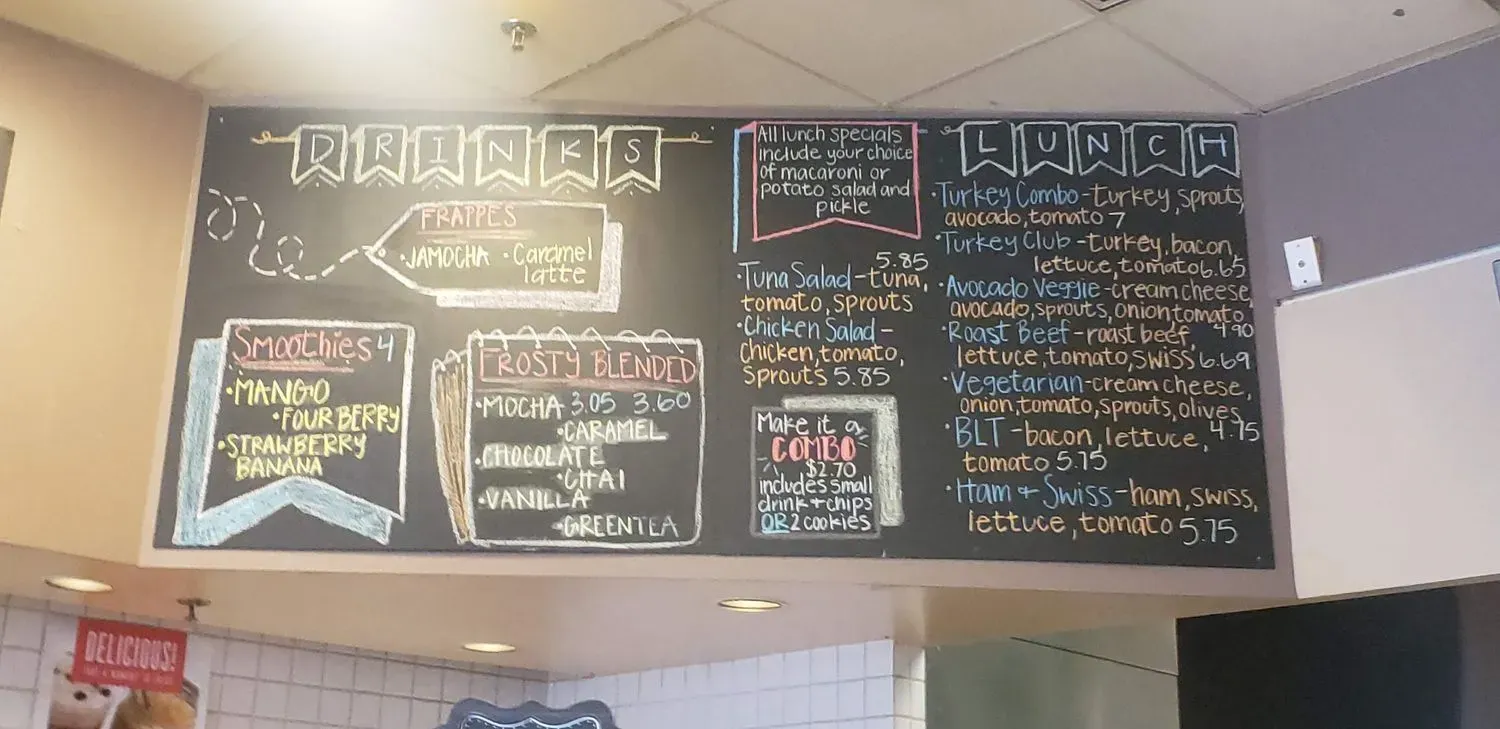 DRINKS
FRAPPES
·JAMOCHA ·Caramel
latte
Smoothies 4
·MANGO
·FOUR BERRY
·STRAWBERRY
BANANA
FROSTY BLENDED
·MOCHA 3.05 3.60
·CARAMEL
·CHOCOLATE
·CHAI
·VANILLA
·GREENTEA
All lunch specials
include your choice
of macaroni or
potato salad and
pickle
5.85
·Tuna Salad-tuna,
tomato, sprouts
·Chicken Salad-
chicken, tomato,
Sprouts 5.85
Make it a
COMBO
$2.70
includes small
drink + chips
OR 2 cookies
LUNCH
·Turkey Combo-turkey, sprouts,
avocado, tomato 7
·Turkey Club-turkey, bacon,
lettuce, tomato 6.65
·Avocado Veggie-cream cheese,
avocado, sprouts, onion tomato
4.90
·Roast Beef-roast beef,
lettuce, tomato, swiss 6.69
·Vegetarian-cream cheese,
onion, tomato, sprouts, olives
4.75
·BLT-bacon, lettuce,
tomato 5.75
·Ham + Swiss-ham, swiss,
lettuce, tomato 5.75
DELICIOUS!